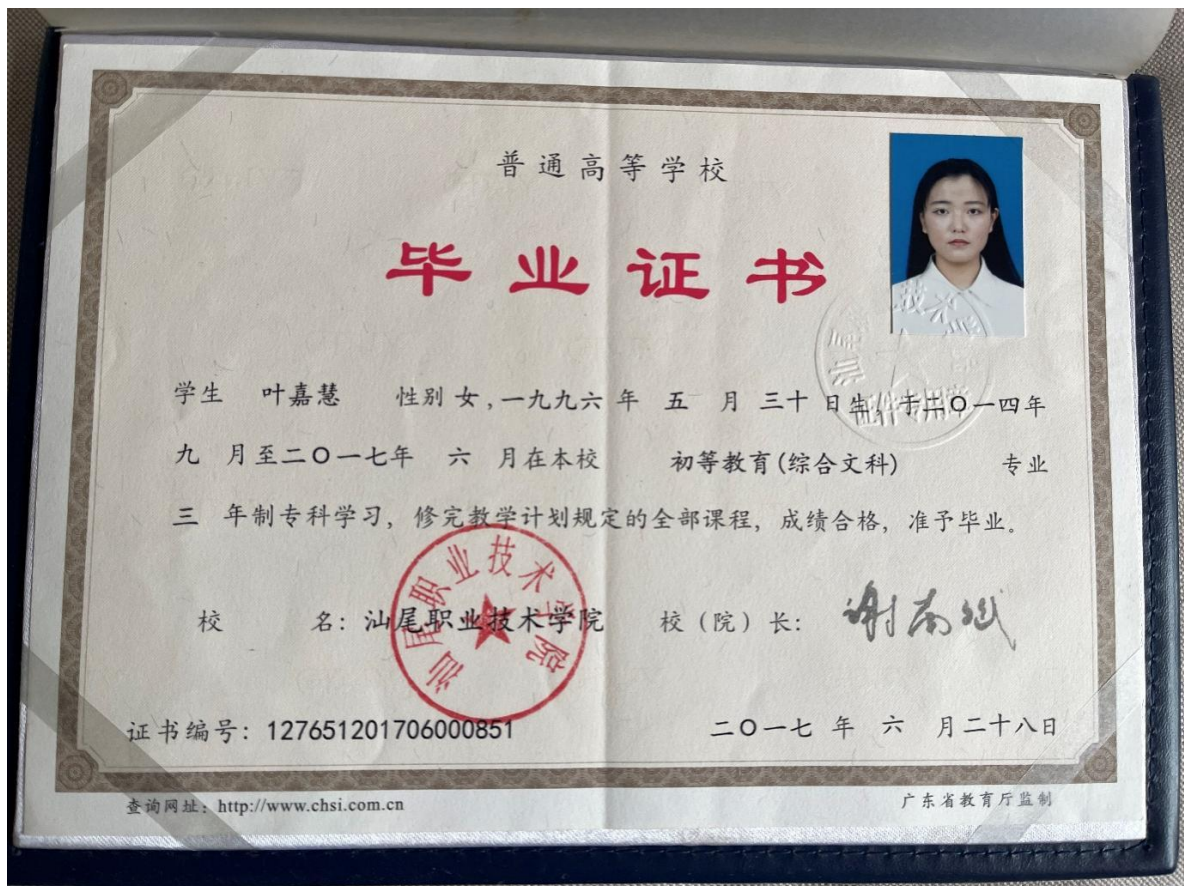 普通高等学校
毕业证书
学生 叶嘉慧 性别 女,一九九六 年 五 月 三十 日生,于二〇一四年
九 月至二〇一七年 六 月在本校 初等教育(综合文科) 专业
三 年制专科学习，修完教学计划规定的全部课程，成绩合格，准予毕业。
校 名：汕尾职业技术学院 校（院）长：谢南斌
汕尾职业技术学院
证件专用章
证书编号：127651201706000851 二〇一七 年 六 月二十八日
查询网址：http://www.chsi.com.cn 广东省教育厅监制